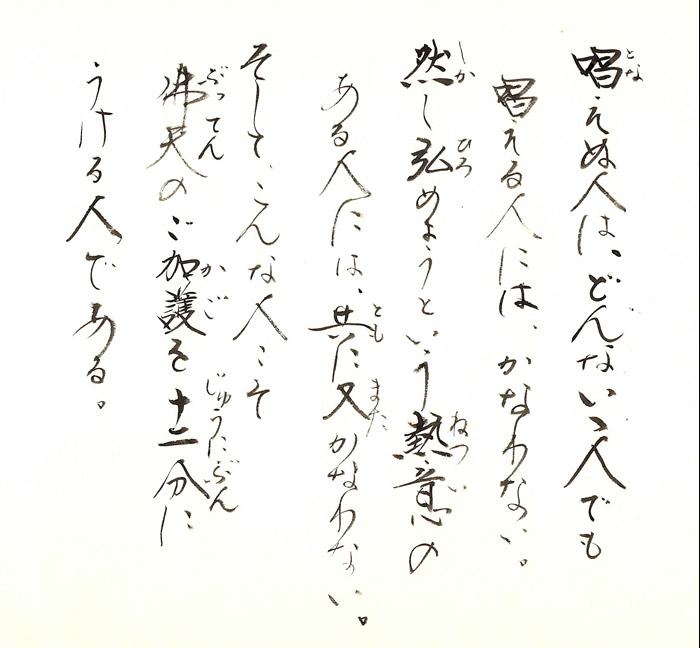 唱えぬ人は、どんないゝ人でも
とな
唱える人には、かなわない。
然し弘めようという熱意の
しか ひろ ねつい
ある人には、共に又かなわない。
とも また
そして、こんな人こそ
佛天のご加護を十二分に
ぶってん かご じゅうにぶん
うける人である。